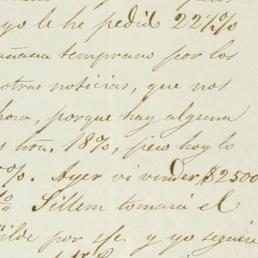 yo le he pedido 22½%
mañana temprano por los
otras noticias, que nos
hora, porque hay alguna
18%, pero hoy lo
%. Ayer vi vender $2500
Sillem tomará el
por sfc y yo seguire